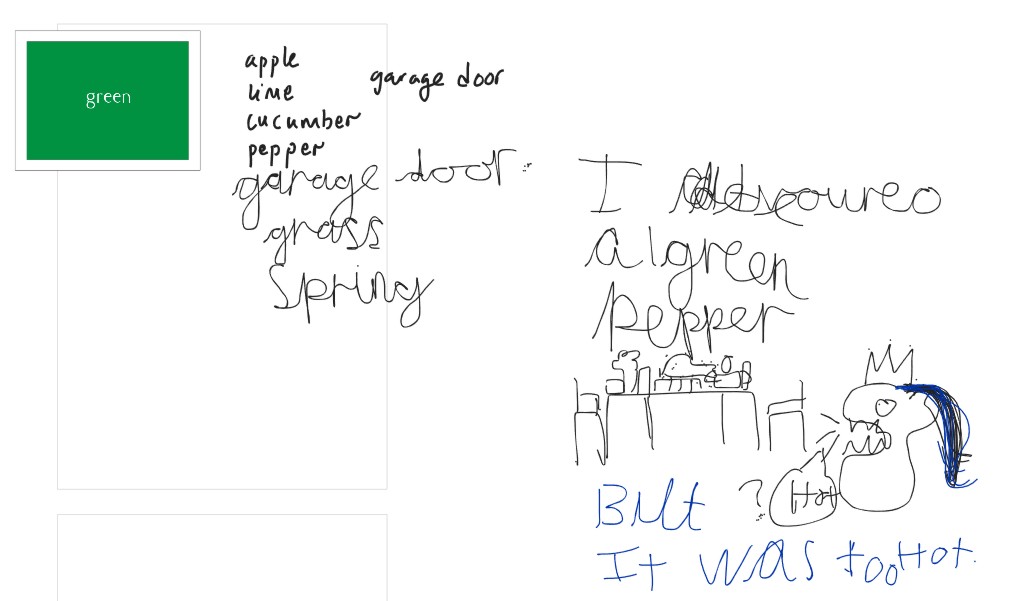 green
apple
lime
garage door
cucumber
pepper
garage door
grass
Spring
I devoured
a green
pepper
Hot
But ?
It was too Hot.